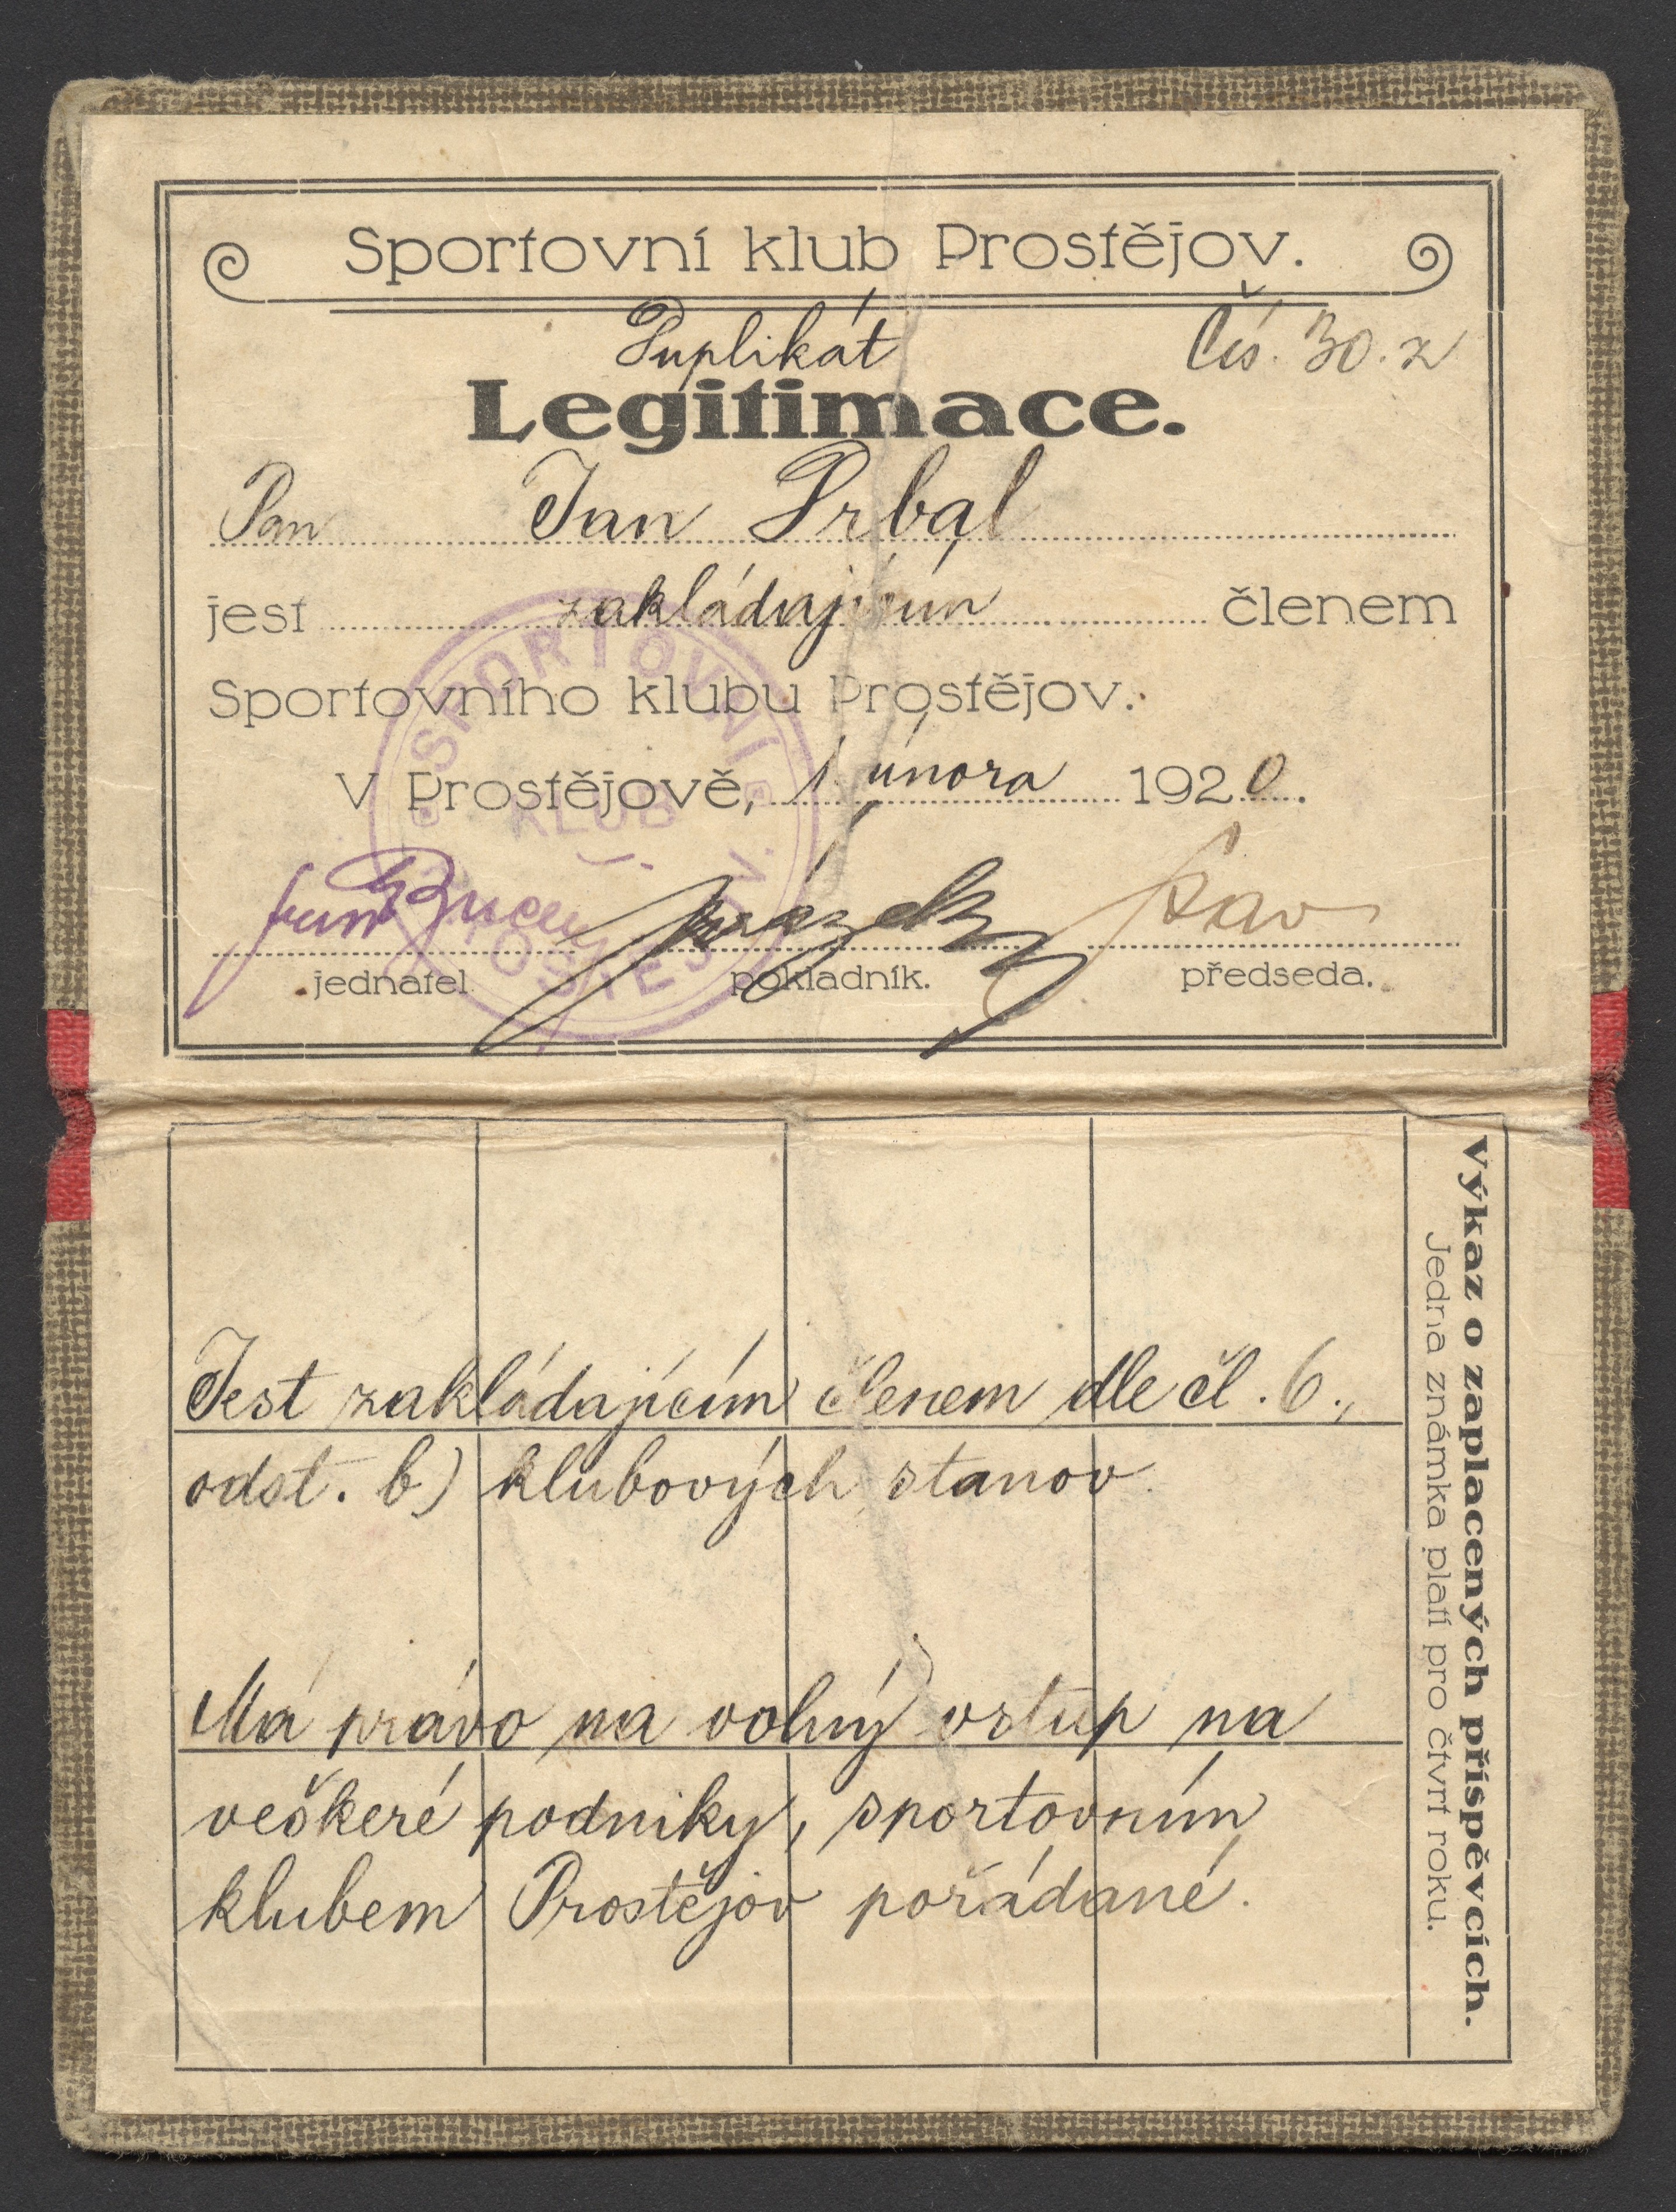 Sportovní klub Prostějov.
Duplikát Čís. 30. z
Legitimace.
Pan Jan Drbal
jest zakládajícím členem
Sportovního klubu Prostějov.
V Prostějově, 1. února 1920.
SPORTOVNÍ KLUB PROSTĚJOV.
jednatel. pokladník. předseda.
Výkaz o zaplacených příspěvcích.
Jedna známka platí pro čtvrt roku.
Jest zakládajícím členem dle čl. 6.,
odst. b) klubových stanov.
Má právo na volný vstup na
veškeré podniky, sportovním
klubem Prostějov pořádané.